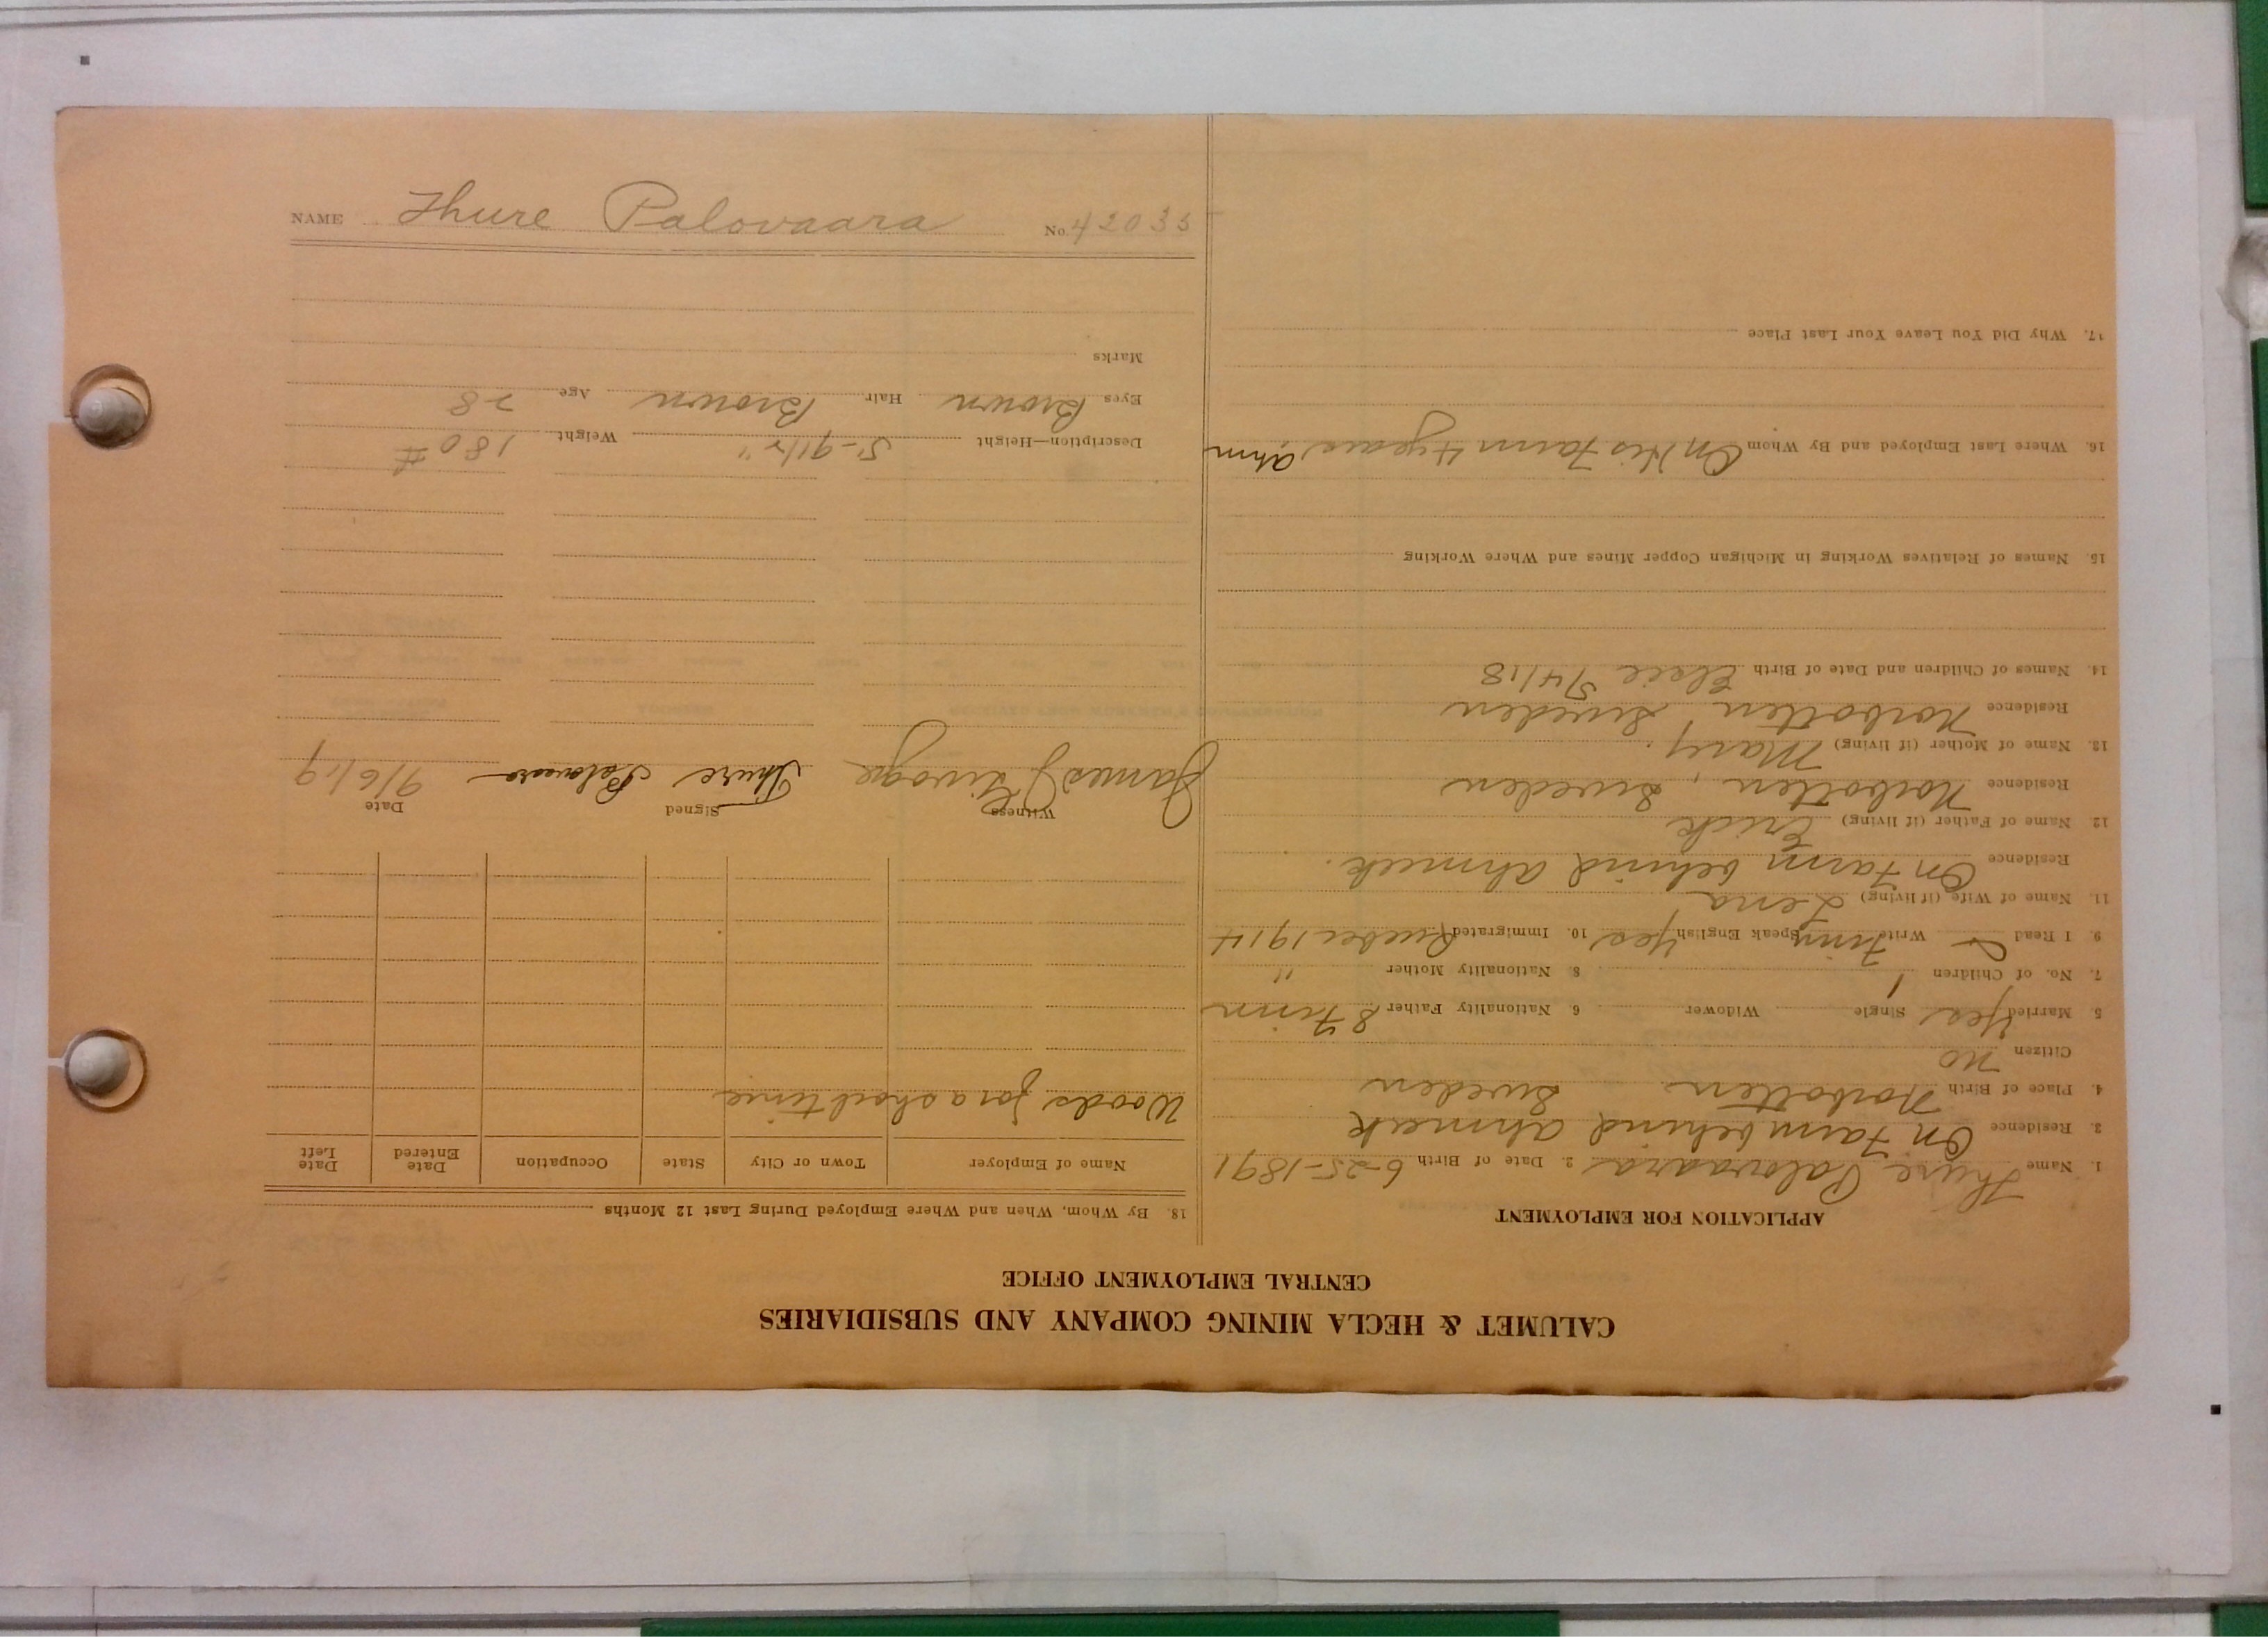 CALUMET & HECLA MINING COMPANY AND SUBSIDIARIES
CENTRAL EMPLOYMENT OFFICE
APPLICATION FOR EMPLOYMENT
1. Name Thure Palovaara 2. Date of Birth 6-25-1891
3. Residence On Farm behind Ahmeek
4. Place of Birth Norbotten Sweden
Citizen no
5. Married Yes Single Widower 6 Nationality Father Finn
7. No. of Children 1 8. Nationality Mother "
9. I Read Write Finn Speak English Yes 10. Immigrated 1914
11. Name of Wife (if living) Lena
Residence On Farm behind Ahmeek.
12. Name of Father (if living) Erick
Residence Norbotten, Sweden
13. Name of Mother (if living) Mary
Residence Norbotten, Sweden
14. Names of Children and Date of Birth Elsie 5/4/18
15. Names of Relatives Working in Michigan Copper Mines and Where Working
16. Where Last Employed and By Whom On His Farm 4 years Ahm
17. Why Did You Leave Your Last Place
18. By Whom, When and Where Employed During Last 12 Months
Name of Employer Town or City State Occupation Date Entered Date Left
Woods for a short time
Witness Signed Date
James J Thure Palovaara 9/6/19
Description—Height 5-9 1/2" Weight 180 #
Eyes Brown Hair Brown Age 28
Marks
NAME Thure Palovaara No. 42035